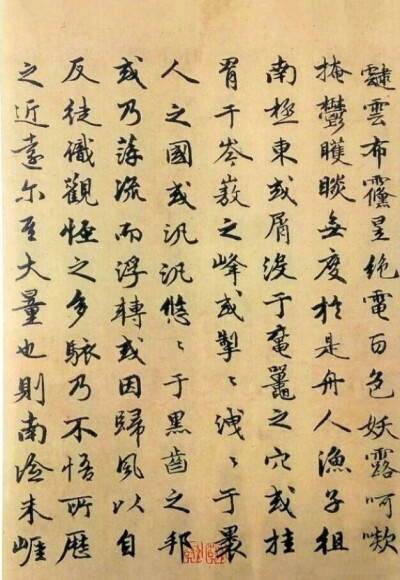 雲布昱絕電百色妖露呵
掩鬱矆睒無度於是舟人漁子徂
南極東或屑没于黿鼉之穴或挂
罥于岑嶅之峰或掣〻洩〻于裸
人之國或汎汎悠〻于黑齒之邦
或乃萍流而浮轉或因歸風以自
反徒識觀怪之多駭乃不悟所歷
之近遠尔其大量也則南澰朱崖